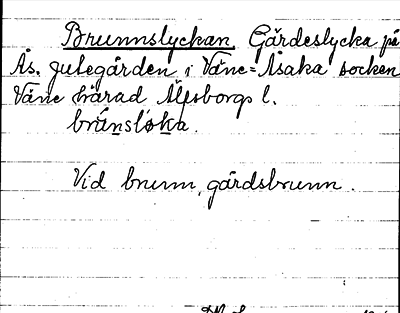 Brunnslyckan, Gärdeslycka på
Ås, Julegården i Väne-Åsaka socken
Väne härad Älfsborgs l.
brúnsløka.
Vid brunn, gårdsbrunn.